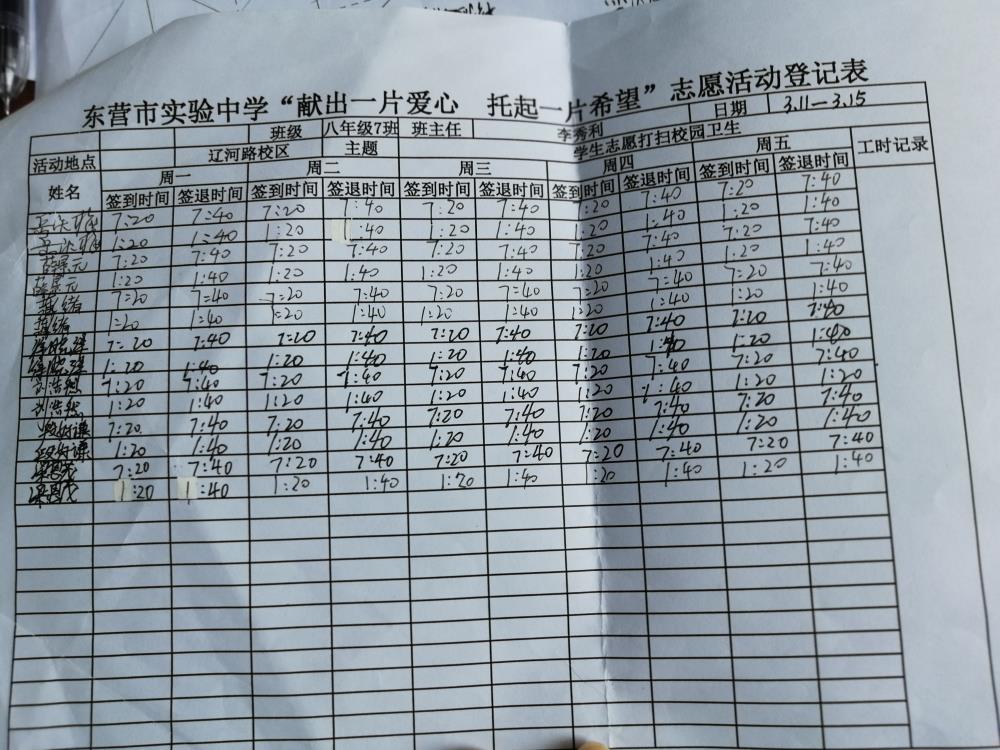 东营市实验中学“献出一片爱心 托起一片希望”志愿活动登记表
班级 八年级7班 班主任 李秀利 日期 3.11—3.15
活动地点 辽河路校区 主题 学生志愿打扫校园卫生 工时记录
姓名 周一 周二 周三 周四 周五
签到时间 签退时间 签到时间 签退时间 签到时间 签退时间 签到时间 签退时间 签到时间 签退时间
7:20 7:40 7:20 7:40 7:20 7:40 :20 7:40 7:20 7:40
1:20 1:40 1:20 1:40 1:20 1:40 :20 1:40 1:20 1:40
7:20 7:40 7:20 7:40 7:20 7:40 7:20 7:40 7:20 7:40
1:20 1:40 1:20 1:40 1:20 1:40 1:20 1:40 1:20 1:40
7:20 7:40 7:20 7:40 7:20 7:40 7:20 7:40 7:20 7:40
1:20 1:40 1:20 1:40 1:20 1:40 1:20 1:40 1:20 1:40
7:20 7:40 7:20 7:40 7:20 7:40 7:20 7:40 7:20 7:40
1:20 1:40 1:20 1:40 1:20 1:40 1:20 1:40 1:20 1:40
刘浩然 7:20 7:40 7:20 7:40 7:20 7:40 7:20 7:40 7:20 7:40
刘浩然 1:20 1:40 1:20 1:40 1:20 1:40 1:20 1:40 1:20 1:20
7:20 7:40 7:20 7:40 7:20 7:40 7:20 7:40 7:20 7:40
1:20 1:40 1:20 1:40 1:20 1:40 1:20 1:40 1:20 1:40
7:20 7:40 7:20 7:40 7:20 7:40 7:20 7:40 7:20 7:40
1:20 1:40 1:20 1:40 1:20 1:40 1:20 1:40 1:20 1:40